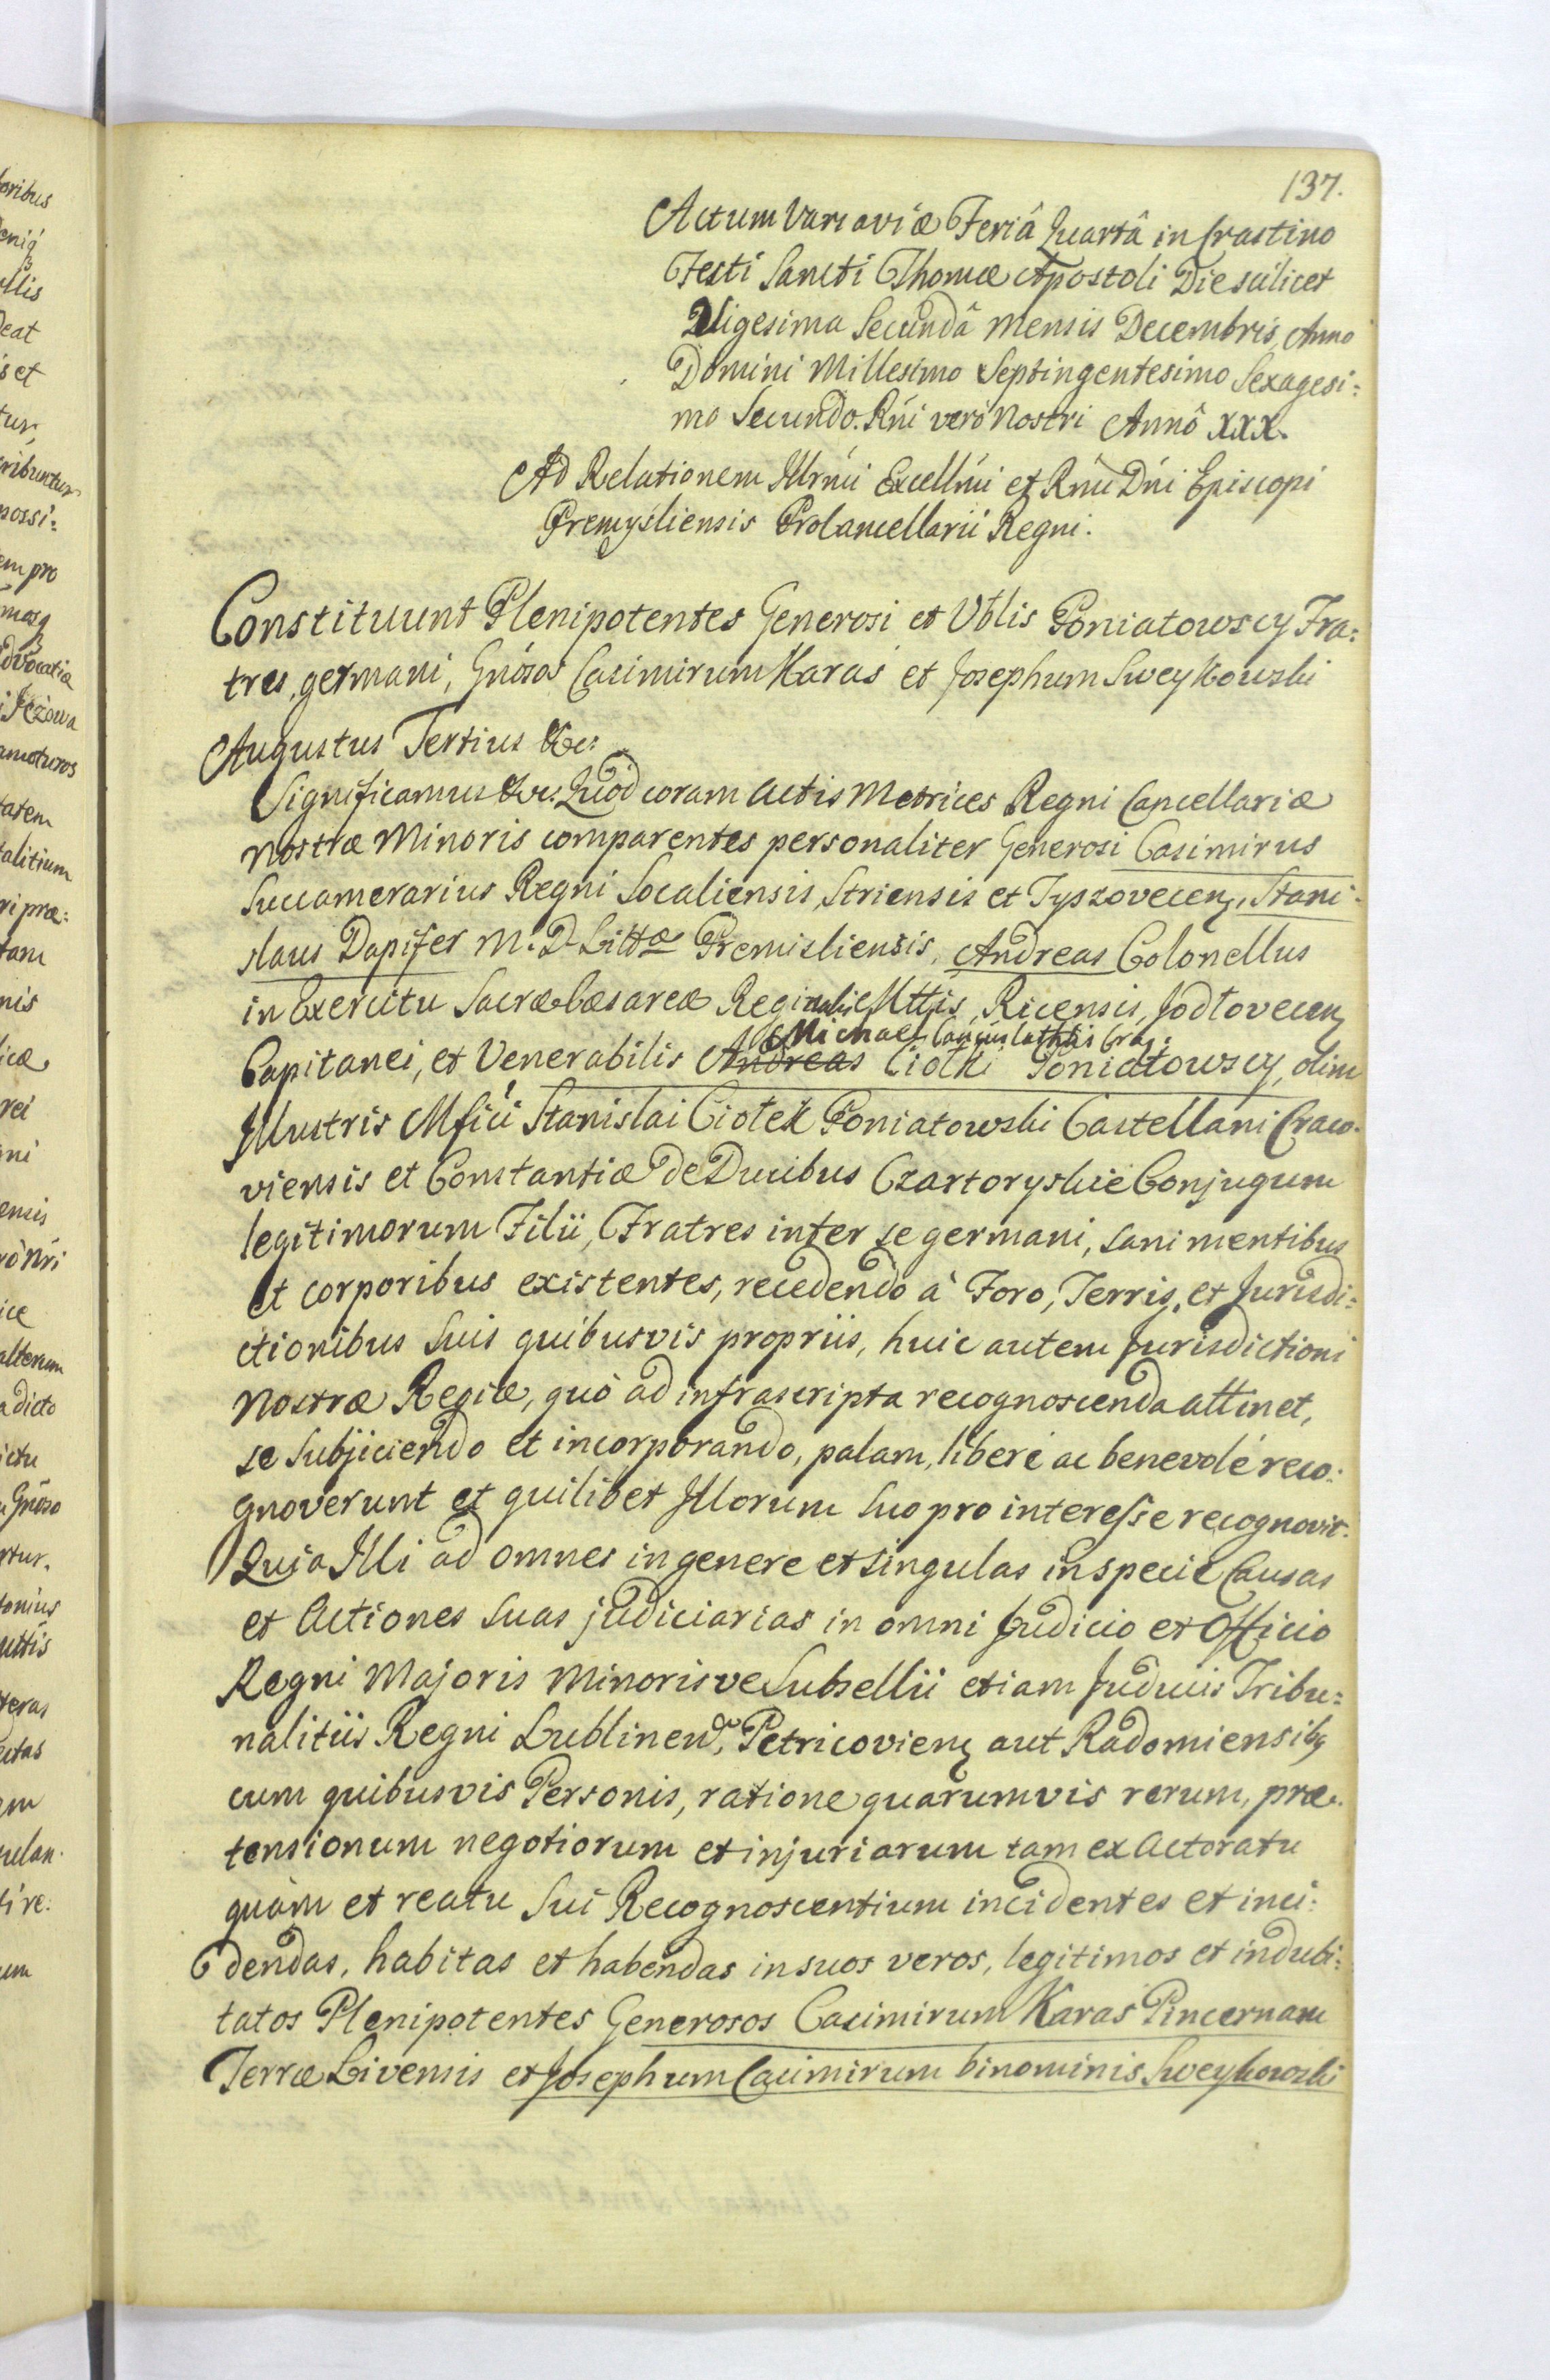 137.
Actum Varsaviæ Feriâ Quartâ in Crastino
Festi Sancti Thomæ Apostoli Die scilicet
Vigesima Secundâ Mensis Decembris, Anno
Domini Millesimo Septingentesimo Sexagesi:
mo Secundo. Rni verò Nostri Annô XXX.
Ad Relationem Illrmi Excellmi et Rmi Dni Episcopi
Premysliensis Procancellarii Regni.
Constituunt Plenipotentes Generosi et Vblis Poniatowscy Fra:
tres, germani, Gnosos Casimirum Karas et Josephum Sweykowski
Augustus Tertius &c:
Significamus &c. Quod coram Actis Metrices Regni Cancellariæ
Nostræ Minoris comparentes personaliter Generosi Casimirus
Succamerarius Regni Socaliensis, Striensis et Tyszovecen, Stani:
slaus Dapifer M. D. Littæ Premisliensis, Andreas Colonellus
in Exercitu Sacræ Cæsareæ Reginalis Mttis, Ricensis, Jodlovecen
Michael Cancus Cathlis Crac:
Capitanei, et Venerabilis Andreas Ciolki Poniatowscy, olim
Illustris Mfici Stanislai Ciolek Poniatowski Castellani Craco:
viensis et Constantiæ De Ducibus Czartoryskie Conjugum
legitimorum Filii, Fratres inter se germani, sani mentibus
et corporibus existentes, recedendo à Foro, Terris, et Jurisdi:
ctionibus suis quibusvis propriis, huic autem Jurisdictioni
Nostræ Regiæ, quò ad infrascripta recognoscenda attinet,
se subjiciendo et incorporando, palam, liberè ac benevolè reco:
gnoverunt et quilibet Illorum suo pro interesse recognovit.
Quia Illi ad omnes in genere et singulas in specie Causas
et Actiones suas judiciarias in omni Judicio et Officio
Regni Majoris Minorisve Subsellii etiam Judiciis Tribu:
nalitiis Regni Lublinen, Petricovien aut Radomiensibq
cum quibusvis Personis, ratione quarumvis rerum, præ:
tensionum negotiorum et injuriarum tam ex Actoratu
quàm et reatu sui Recognoscentium incidentes et inci:
dendas, habitas et habendas in suos veros, legitimos et indubi:
tatos Plenipotentes Generosos Casimirum Karas Pincernam
Terræ Livensis et Josephum Casimirum binominis Sweykowski